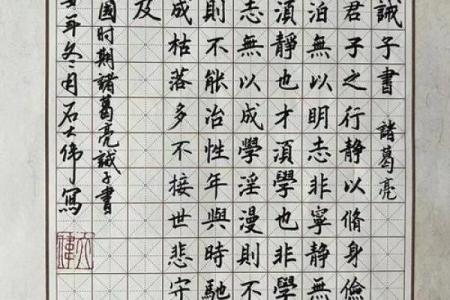 誡子書 諸葛亮
君子之行静以脩身儉
泊無以明志非寧静無
須静也才須學也非學
志無以成學淫漫則不
則不能冶性年與時馳
成枯落多不接世悲守
及
國时期諸葛亮誡子書
年冬月石大偉寫